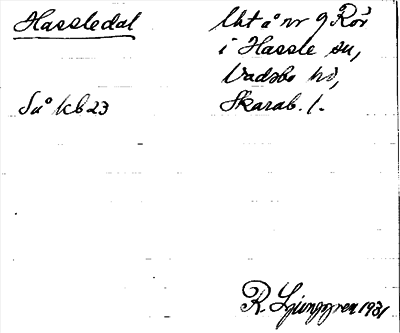 Hassledal
Så kb 23
Uht å nr 9 Rör
i Hassle sn,
Vadsbo hd,
Skarab. l.
R. Ljunggren 1931